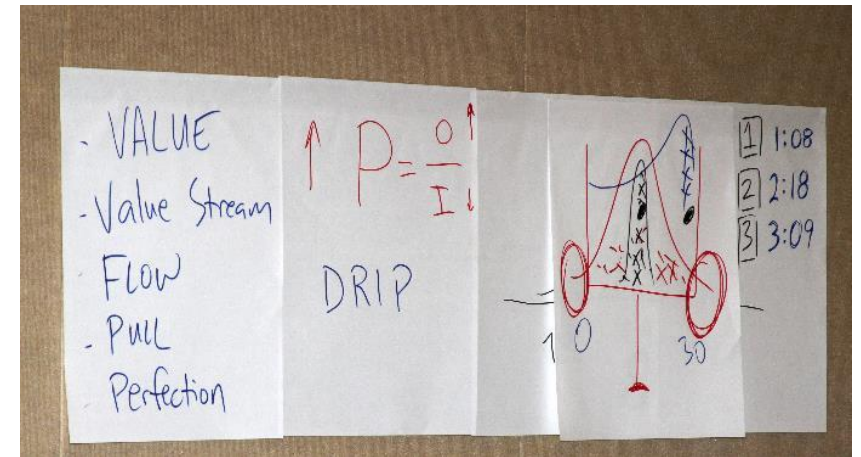 - VALUE
- Value Stream
- FLOW
- PULL
- Perfection
↑ P = O↑
I↓
DRIP
1 0 30
1 1:08
2 2:18
3 3:09